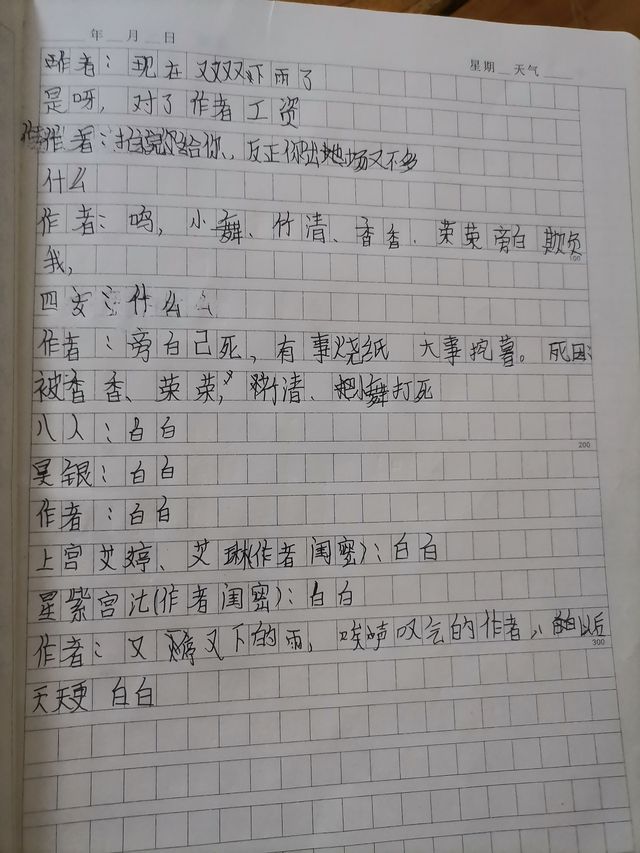 年 月 日
星期 天气
作者：现在又双叒下雨了
是呀，对了作者工资
作者：给你、反正你出场又不多
什么
作者：呜，小舞、竹清、香香、荣荣旁白欺负
100
我，
四女：什么
作者：旁白己死，有事烧纸 大事挖墓。死因：
被香香、荣荣，竹清、小舞打死
八人：白白
200
昊银：白白
作者：白白
上宫艾婷、艾琳(作者闺蜜)：白白
星紫宫沈(作者闺蜜)：白白
作者：又 又下的雨，唉声叹气的作者，以后
300
天天更 白白